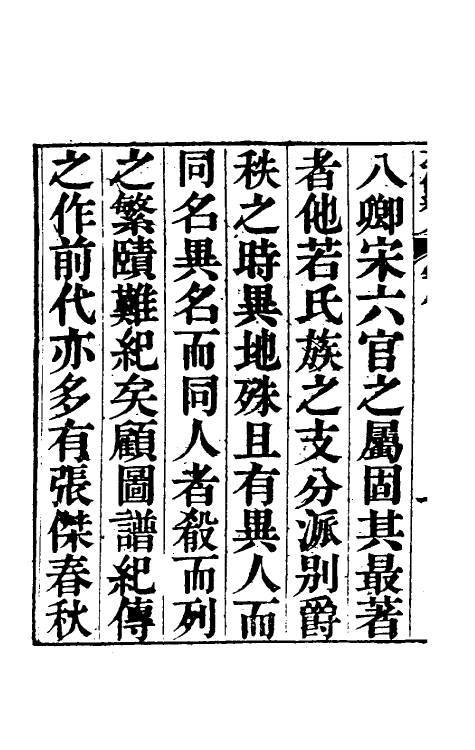 八卿宋六官之屬固其最著
者他若氏族之支分派别爵
秩之時異地殊且有異人而
同名異名而同人者殽而列
之繁賾難紀矣顧圖譜紀傳
之作前代亦多有張傑春秋